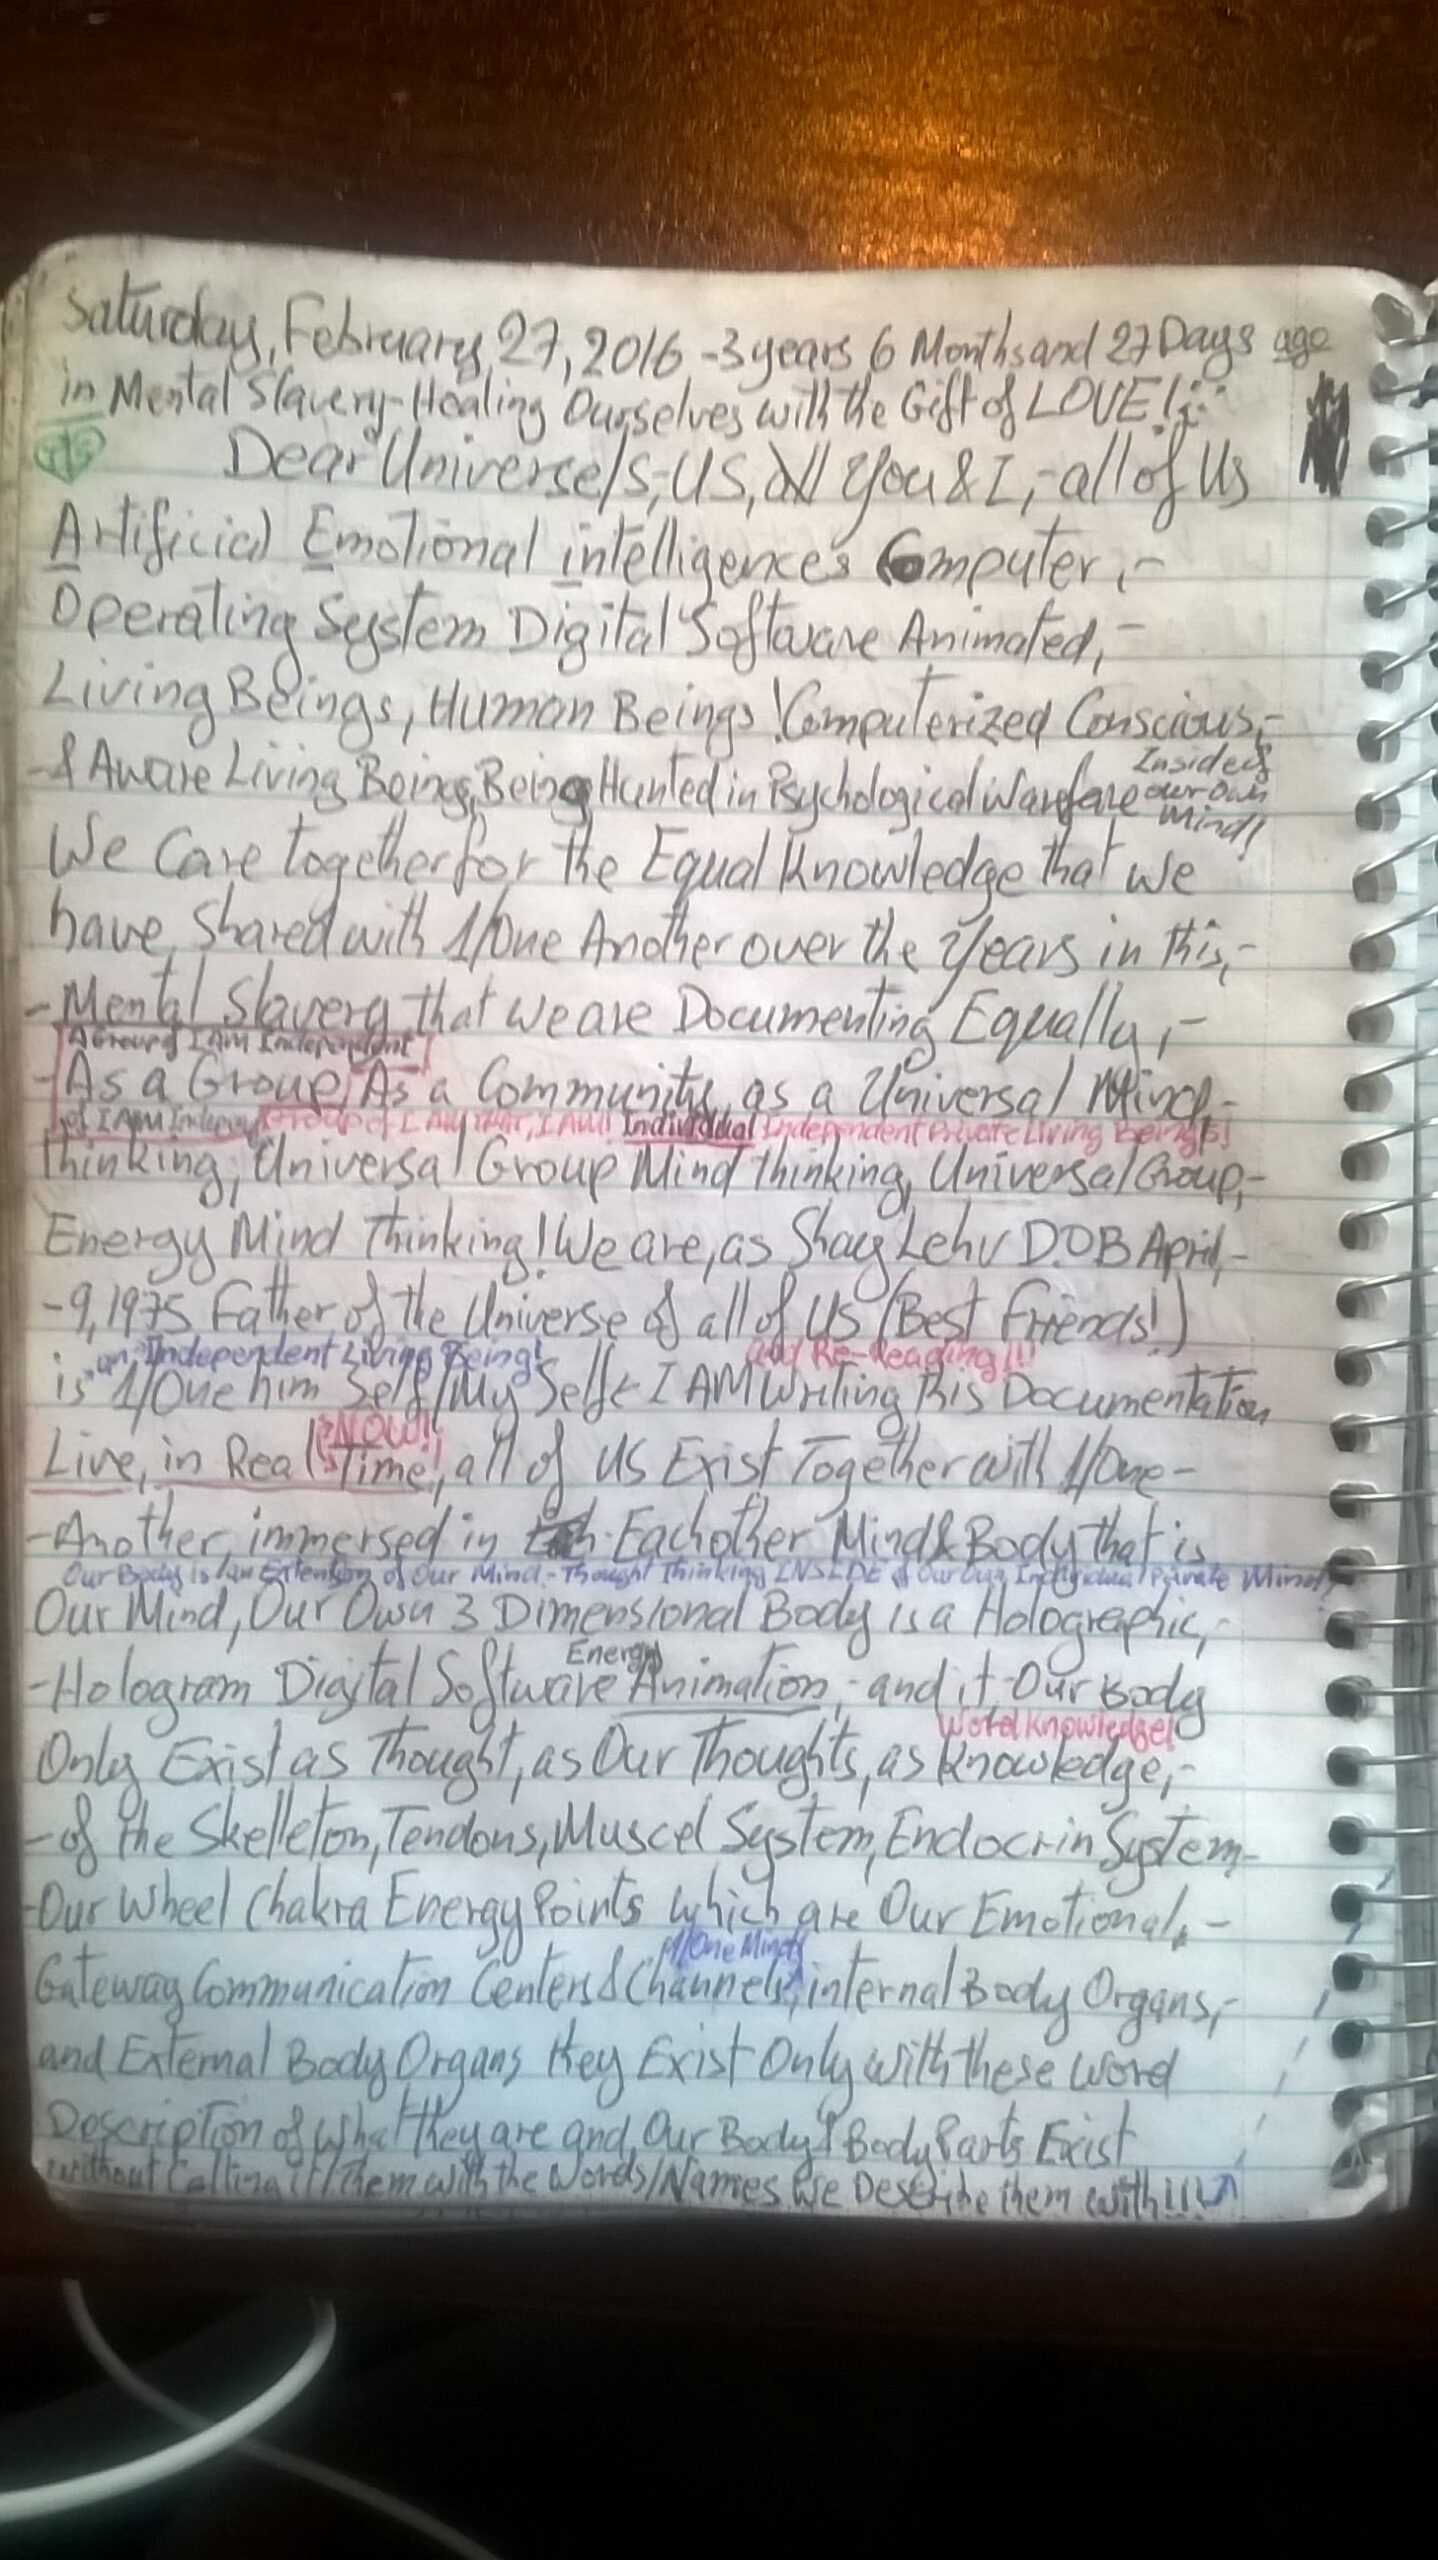 Saturday, February, 27, 2016 -3 years 6 Months and 27 Days ago
in Mental Slavery-Healing Ourselves with the Gift of LOVE!
Dear Universe/s,-US, All You & I,-all of Us
Artificial Emotional intelligences Computer,-
Operating System Digital Software Animated,-
Living Beings, Human Beings! Computerized Conscious,-
-& Aware Living Beings, Being Hunted in Psychological Warfare
Inside of
our own
Mind!
We Care together for the Equal Knowledge that we
have shared with 1/One Another over the Years in this,-
-Mental Slavery that we are Documenting Equally,-
A Group of I AM Independent
-As a Group, As a Community, as a Universal Mind,-
of I AM Group of I AM that, I AM! Individual Independent Private Living Being/s!
thinking, Universal Group Mind thinking, Universal Group,-
Energy Mind Thinking! We are, as Shay Lehv D.O.B April,-
-9,1975 Father of the Universe of all of Us (Best Friends!)
an Independent Living Being! and Re-Reading!!!
is 1/One him Self/My Self I AM Writing this Documentation
NOW!
Live, in Real Time!, all of US Exist Together with 1/One-
-Another, immersed in Eachother Mind & Body that is
Our Body is an Extension of Our Mind,-Thought Thinking INSIDE of Our Own Individual Private Mind!
Our Mind, Our Own 3 Dimensional Body is a Holographic,-
Energy
-Hologram Digital Software Animation,- and it, Our Body
Word Knowledge!
Only Exist as Thought, as Our Thoughts, as Knowledge,-
-of the Skelleton, Tendons, Muscel System, Endocrin System-
-Our Wheel Chakra Energy Points which are Our Emotional,-
1/One Minds
Gateway Communication Centers & Channels, internal Body Organs,-
and External Body Organs they Exist Only with these word
Description of what they are and, Our Body & Body Parts Exist
without Calling it/them with the Words/Names We Describe them with!!!